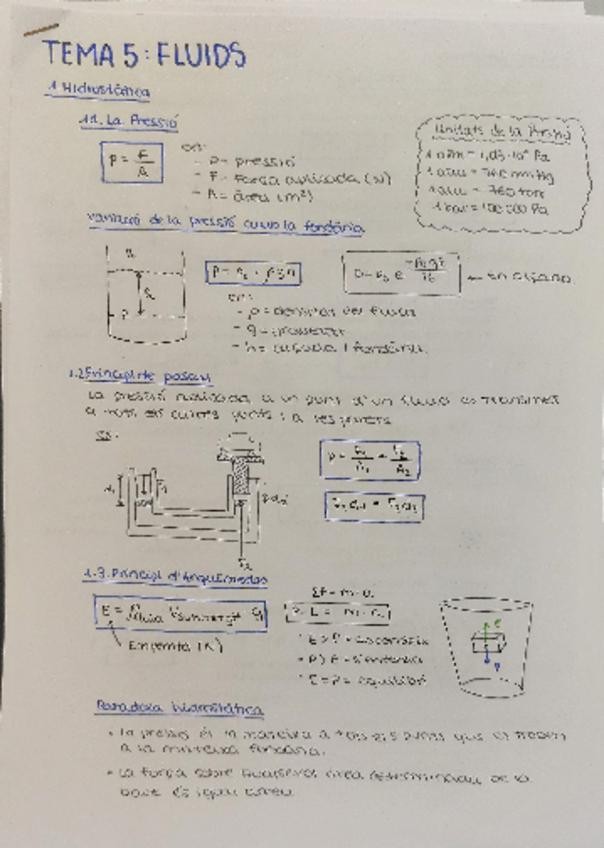 TEMA 5: FLUIDS
1 Hidrostàtica
1.1. La Pressió
P = F/A
on:
- P = pressió
- F = Força aplicada (N)
- A = àrea (m²)
Unitats de la Pressió
1 atm = 1,013·10⁵ Pa
1 atm = 760 mmHg
1 atm = 760 torr
1 bar = 100 000 Pa
Variació de la pressió amb la fondària
on:
- ρ = densitat del fluid
- g = gravetat
- h = alçada / fondària
1.2 Principi de Pascal
La pressió realitzada a un punt d'un fluid es transmet
a tots els altres punts i a les parets
P = F₁/A₁ = F₂/A₂
1.3. Principi d'Arquímedes
E = ρfluid Vsumergit g
Empenta (N)
ΣF = m·a
P - E = m·a
E > P =
P > E =
E = P = equilibri
E
P
Paradoxa hidrostàtica
• La pressió és la mateixa a tots els punts que es troben
a la mateixa fondària.
• La força sobre qualsevol àrea determinada de la
base és igual